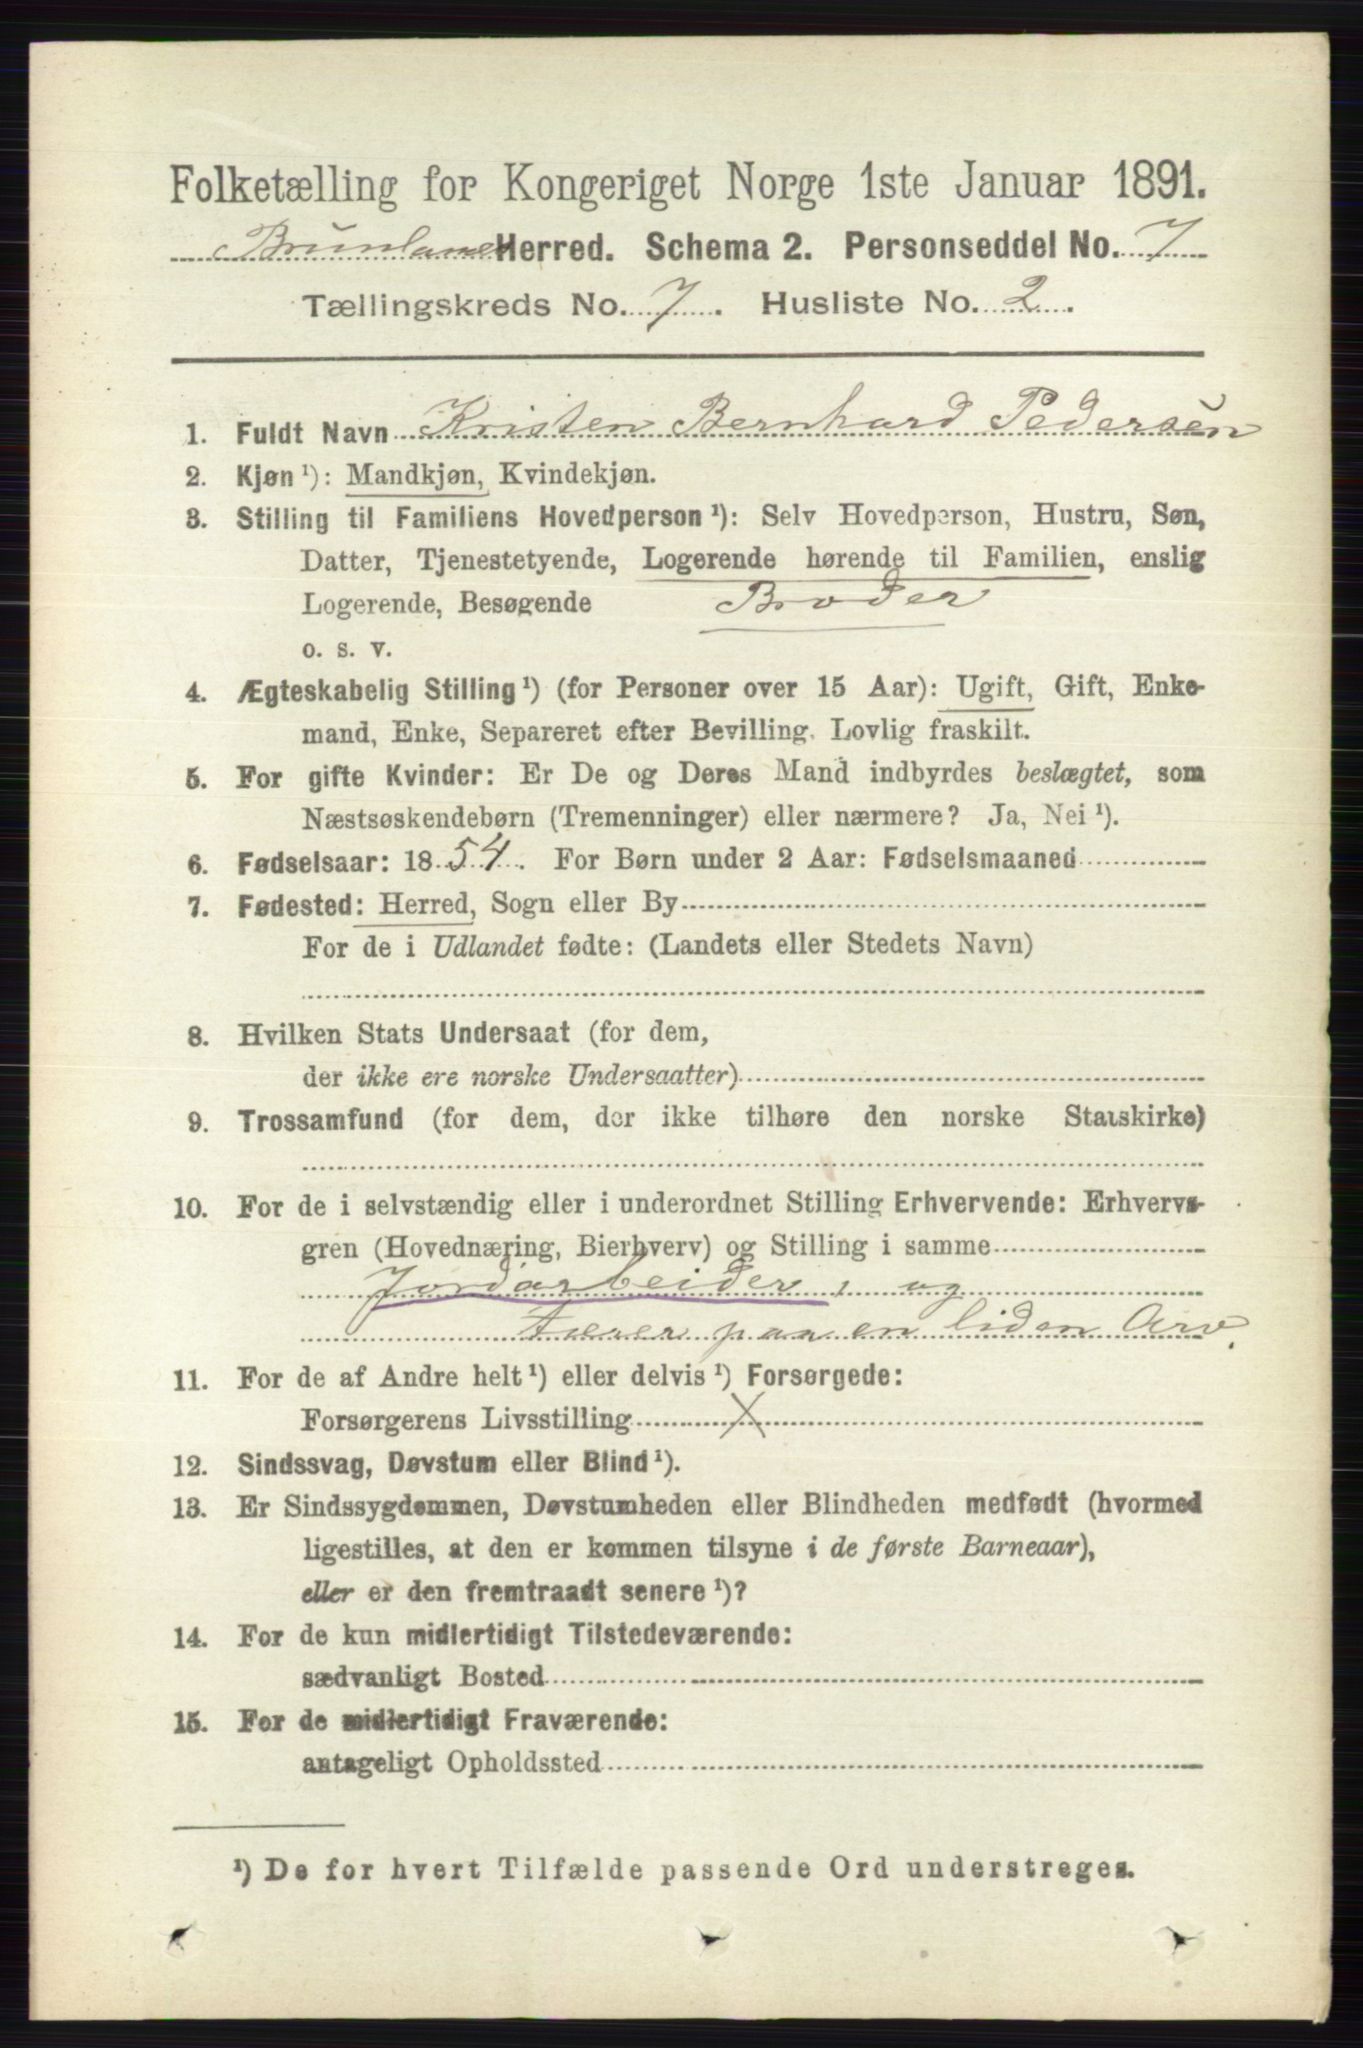 Folketælling for Kongeriget Norge 1ste Januar 1891.
Brunlanes Herred. Schema 2. Personseddel No. 7
Tællingskreds No. 7. Husliste No. 2.
1. Fuldt Navn Kristen Bernhard Pedersen
2. Kjøn ¹): Mandkjøn, Kvindekjøn.
3. Stilling til Familiens Hovedperson ¹): Selv Hovedperson, Hustru, Søn,
Datter, Tjenestetyende, Logerende hørende til Familien, enslig
Logerende, Besøgende Broder
o. s. v.
4. Ægteskabelig Stilling ¹) (for Personer over 15 Aar): Ugift, Gift, Enke-
mand, Enke, Separeret efter Bevilling. Lovlig fraskilt.
5. For gifte Kvinder: Er De og Deres Mand indbyrdes beslægtet, som
Næstsøskendebørn (Tremenninger) eller nærmere? Ja, Nei ¹).
6. Fødselsaar: 1854. For Børn under 2 Aar: Fødselsmaaned
7. Fødested: Herred, Sogn eller By
For de i Udlandet fødte: (Landets eller Stedets Navn)
8. Hvilken Stats Undersaat (for dem,
der ikke ere norske Undersaatter)
9. Trossamfund (for dem, der ikke tilhøre den norske Statskirke)
10. For de i selvstændig eller i underordnet Stilling Erhvervende: Erhvervs-
gren (Hovednæring, Bierhverv) og Stilling i samme
Jordarbeider, og
tærer paa en liden Arv.
11. For de af Andre helt ¹) eller delvis ¹) Forsørgede:
Forsørgerens Livsstilling X
12. Sindssvag, Døvstum eller Blind ¹).
13. Er Sindssygdommen, Døvstumheden eller Blindheden medfødt (hvormed
ligestilles, at den er kommen tilsyne i de første Barneaar),
eller er den fremtraadt senere ¹)?
14. For de kun midlertidigt Tilstedeværende:
sædvanligt Bosted
15. For de midlertidigt Fraværende:
antageligt Opholdssted
¹) De for hvert Tilfælde passende Ord understreges.